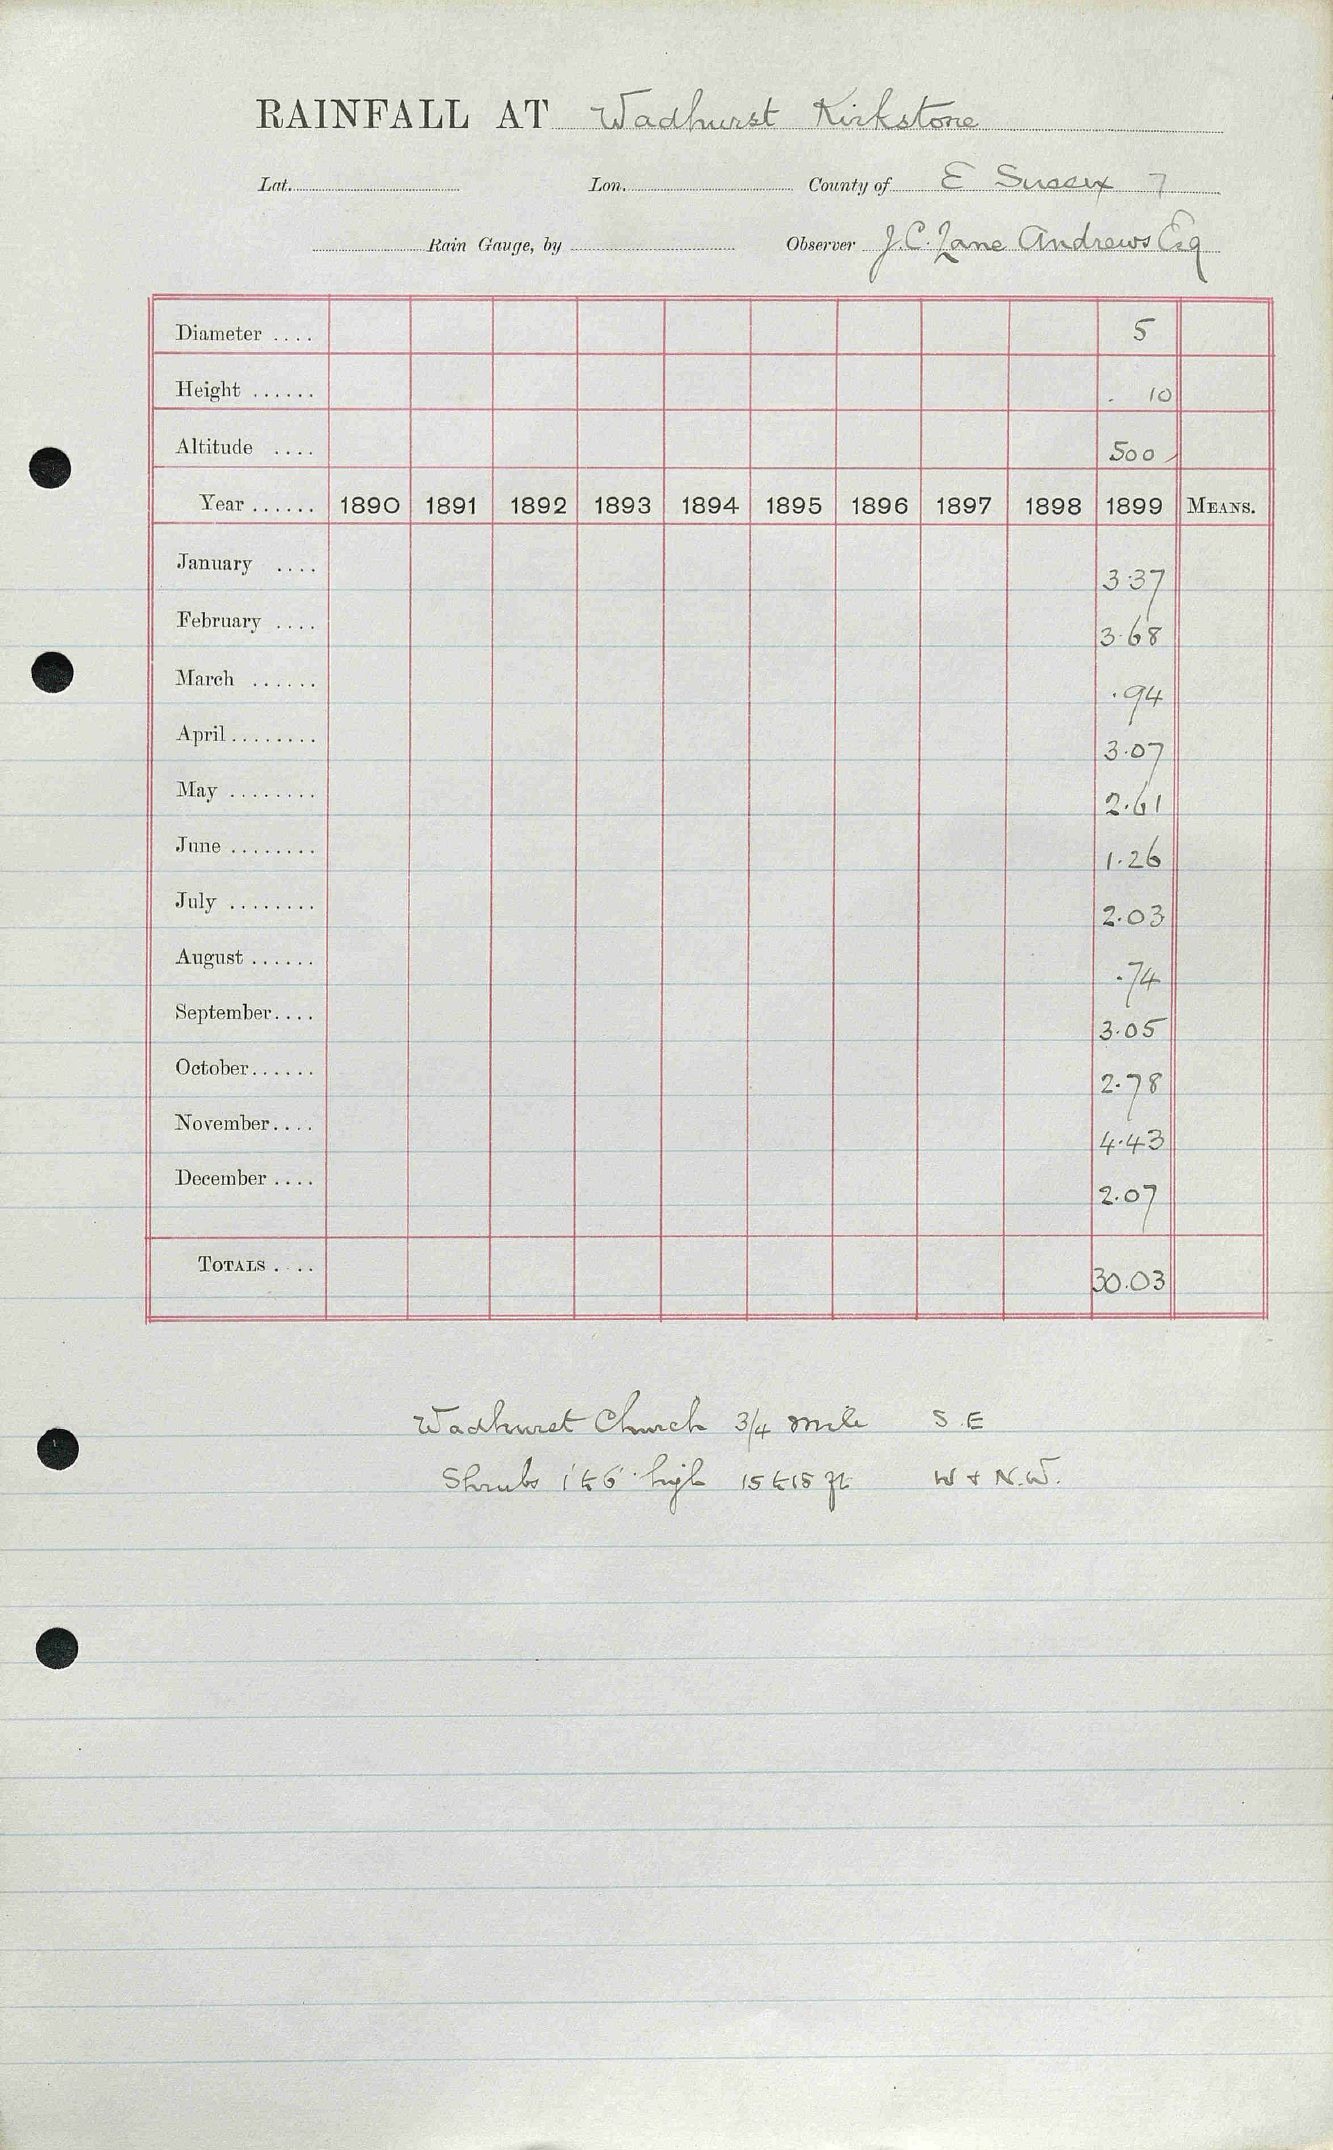 RAINFALL AT Wadhurst Kirkstone
Lat. Lon. County of E Sussex 7
Rain Gauge, by Observer J. C. Lane Andrews Esq
Diameter .... 5
Height ...... . 10
Altitude .... 500
Year ...... 1890 1891 1892 1893 1894 1895 1896 1897 1898 1899 MEANS.
January .... 3.37
February .... 3.68
March ...... .94
April ........ 3.07
May ........ 2.61
June ........ 1.26
July ........ 2.03
August ...... .74
September.... 3.05
October...... 2.78
November.... 4.43
December .... 2.07
TOTALS .... 30.03
Wadhurst Church 3/4 mile S.E
Shrubs 1' to 6' high 15 to 18 ft W & N.W.